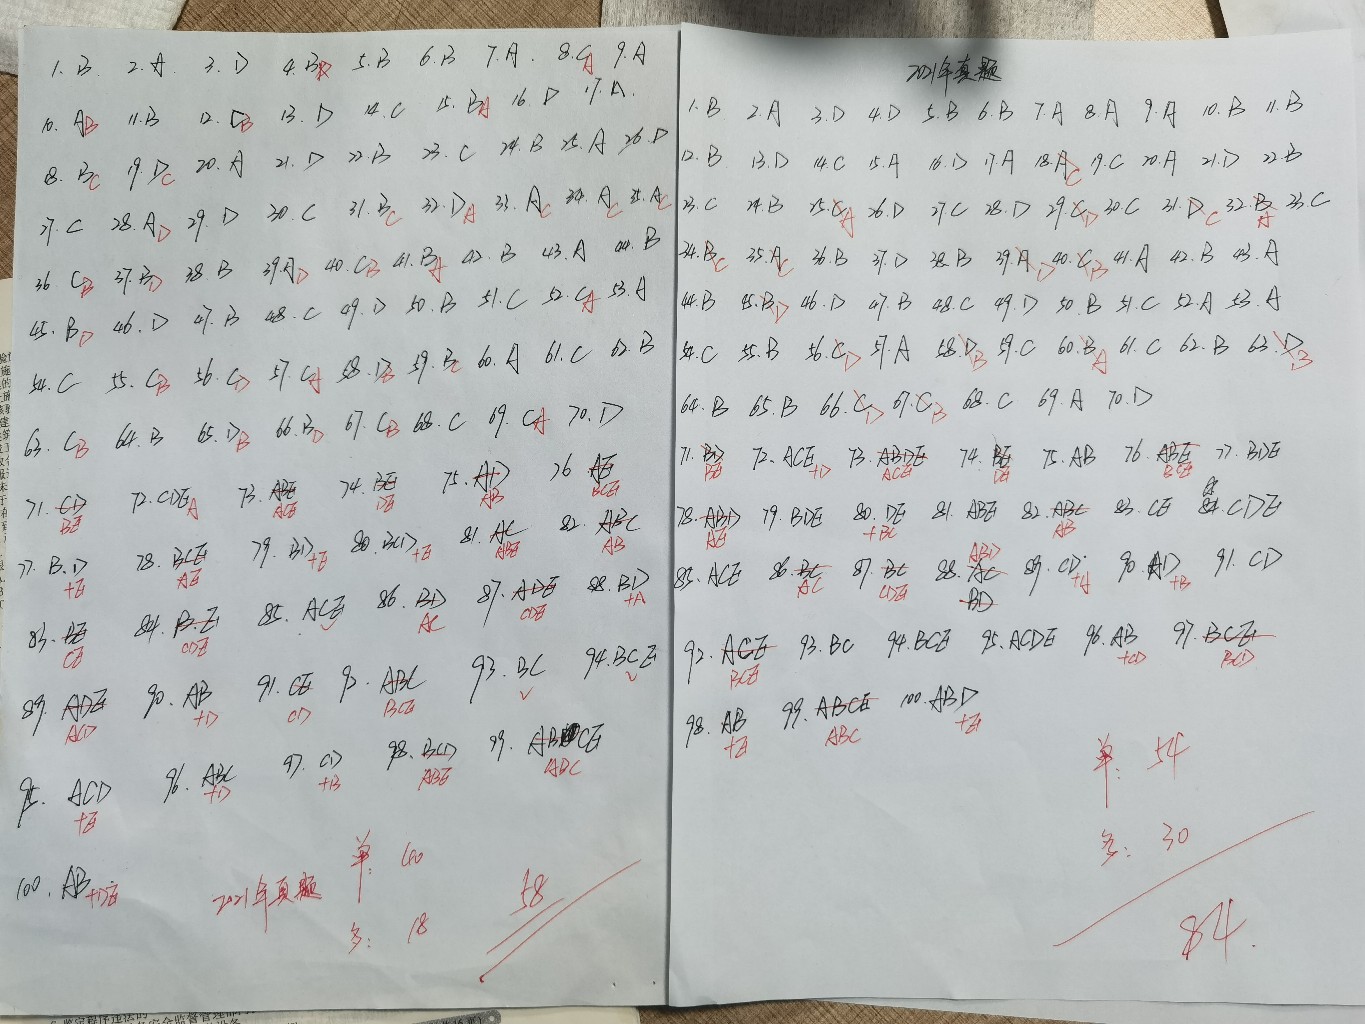 1. B 2. A 3. D 4. B D 5. B 6. B 7. A 8. C A 9. A
10. A B 11. B 12. C B 13. D 14. C 15. B A 16. D 17. A
18. B C 19. D C 20. A 21. D 22. B 23. C 24. B 25. A 26. D
27. C 28. A D 29. D 30. C 31. B C 32. D A 33. A C 34. A C 35. A C
36. C B 37. B D 38. B 39. A D 40. C B 41. B A 42. B 43. A 44. B
45. B D 46. D 47. B 48. C 49. D 50. B 51. C 52. C A 53. A
54. C 55. C B 56. C D 57. C A 58. D B 59. B C 60. A 61. C 62. B
63. C B 64. B 65. D B 66. B D 67. C B 68. C 69. C A 70. D
71. CD 72. CDE A 73. ABE 74. BE 75. AD 76. AE
BE ACE DE AB BCE
77. B.D 78. BCE 79. BD +E 80. BCD +E 81. AC 82. ABC
+E AE ABE AB
83. BE 84. B.E 85. ACE 86. BD 87. ADE 88. BD
CE CDE AC CDE +A
89. ADE 90. AB 91. CE 92. ABC 93. BC 94. BCE
ACD +D CD BCE
95. ACD 96. ABC 97. CD 98. BCD 99. AB CE
+E +D +B ABE ABC
100. AB +DE
2021年真题
单: 40
多: 18
58
2021年真题
1. B 2. A 3. D 4. D 5. B 6. B 7. A 8. A 9. A 10. B 11. B
12. B 13. D 14. C 15. A 16. D 17. A 18. A C 19. C 20. A 21. D 22. B
23. C 24. B 25. C A 26. D 27. C 28. D 29. C D 30. C 31. D C 32. B A 33. C
34. B C 35. A C 36. B 37. D 38. B 39. A D 40. C B 41. A 42. B 43. A
44. B 45. B D 46. D 47. B 48. C 49. D 50. B 51. C 52. A 53. A
54. C 55. B 56. C D 57. A 58. D B 59. C 60. B A 61. C 62. B 63. D B
64. B 65. B 66. C D 67. C B 68. C 69. A 70. D
71. BD 72. ACE +D 73. ABDE 74. BE 75. AB 76. ABE 77. BDE
BE ACE DE BCE
78. ABD 79. BDE 80. DE 81. ABE 82. ABC 83. CE 84. CDE
AE +BC AB
85. ACE 86. BC 87. BC 88. AC 89. CD +A 90. AD +B 91. CD
AC CDE ABD BD
92. ACE 93. BC 94. BCE 95. ACDE 96. AB 97. BCE
BCE +CD BCD
98. AB 99. ABCE 100. ABD
+E ABC +E
单: 54
多: 30
84.